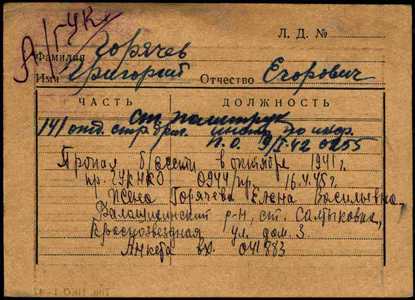 А/ГУК
Л. Д. №
Фамилия Горячев
Имя Григорий Отчество Егорович
ЧАСТЬ ДОЛЖНОСТЬ
ст. политрук
141 отд. стр. бриг.
Пропал б/вести в октябре 1941 г.
пр. ГУКНКО 0944/пр. 16.4.45 г.
Жена Горячева Елена Васильевна,
Балашихинский р-н, ст. Салтыковка,
Краснозвездная ул. дом. 3.
Анкета вх. 041883